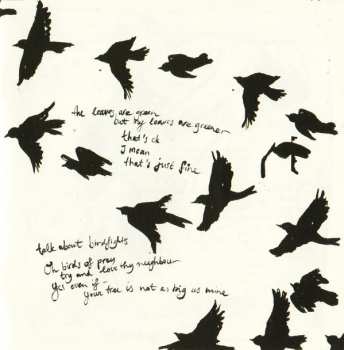 the leaves are green
but my leaves are greener
that's ok
I mean
that's just fine
talk about birdfights
Oh birds of prey
try and love thy neighbour
Yes even if
your tree is not as big as mine